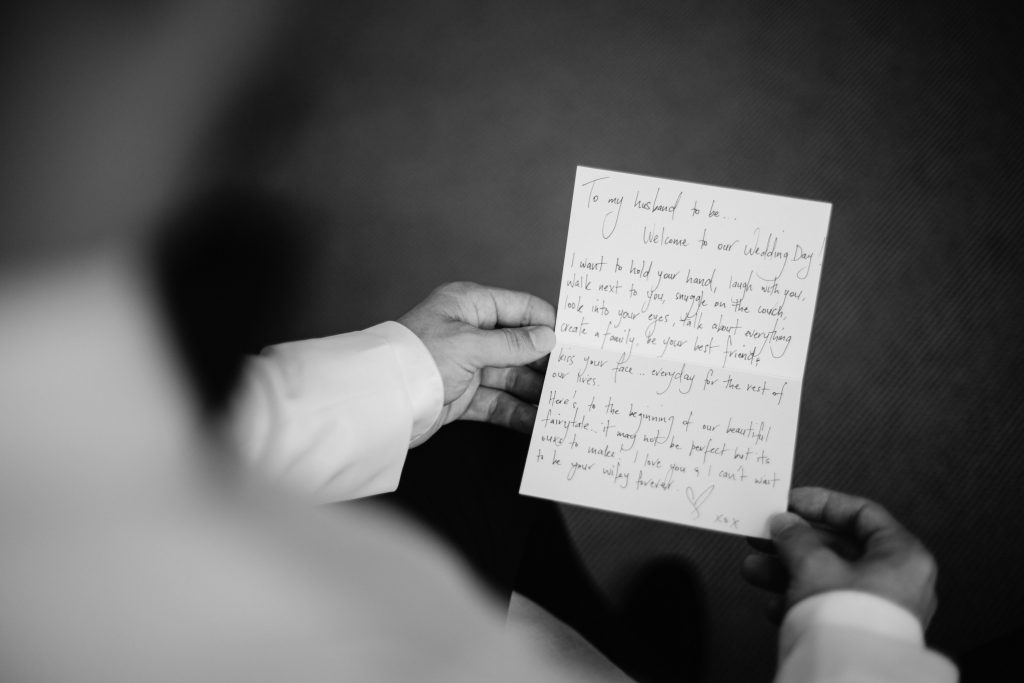 To my husband to be...
Welcome to our Wedding Day!
I want to hold your hand, laugh with you,
walk next to you, snuggle on the couch,
look into your eyes, talk about everything
create a family, be your best friend,
kiss your face... everyday for the rest of
our lives.
Here's to the beginning of our beautiful
fairytale... it may not be perfect but its
ours to make! I love you & I can't wait
to be your wifey forever.
xox